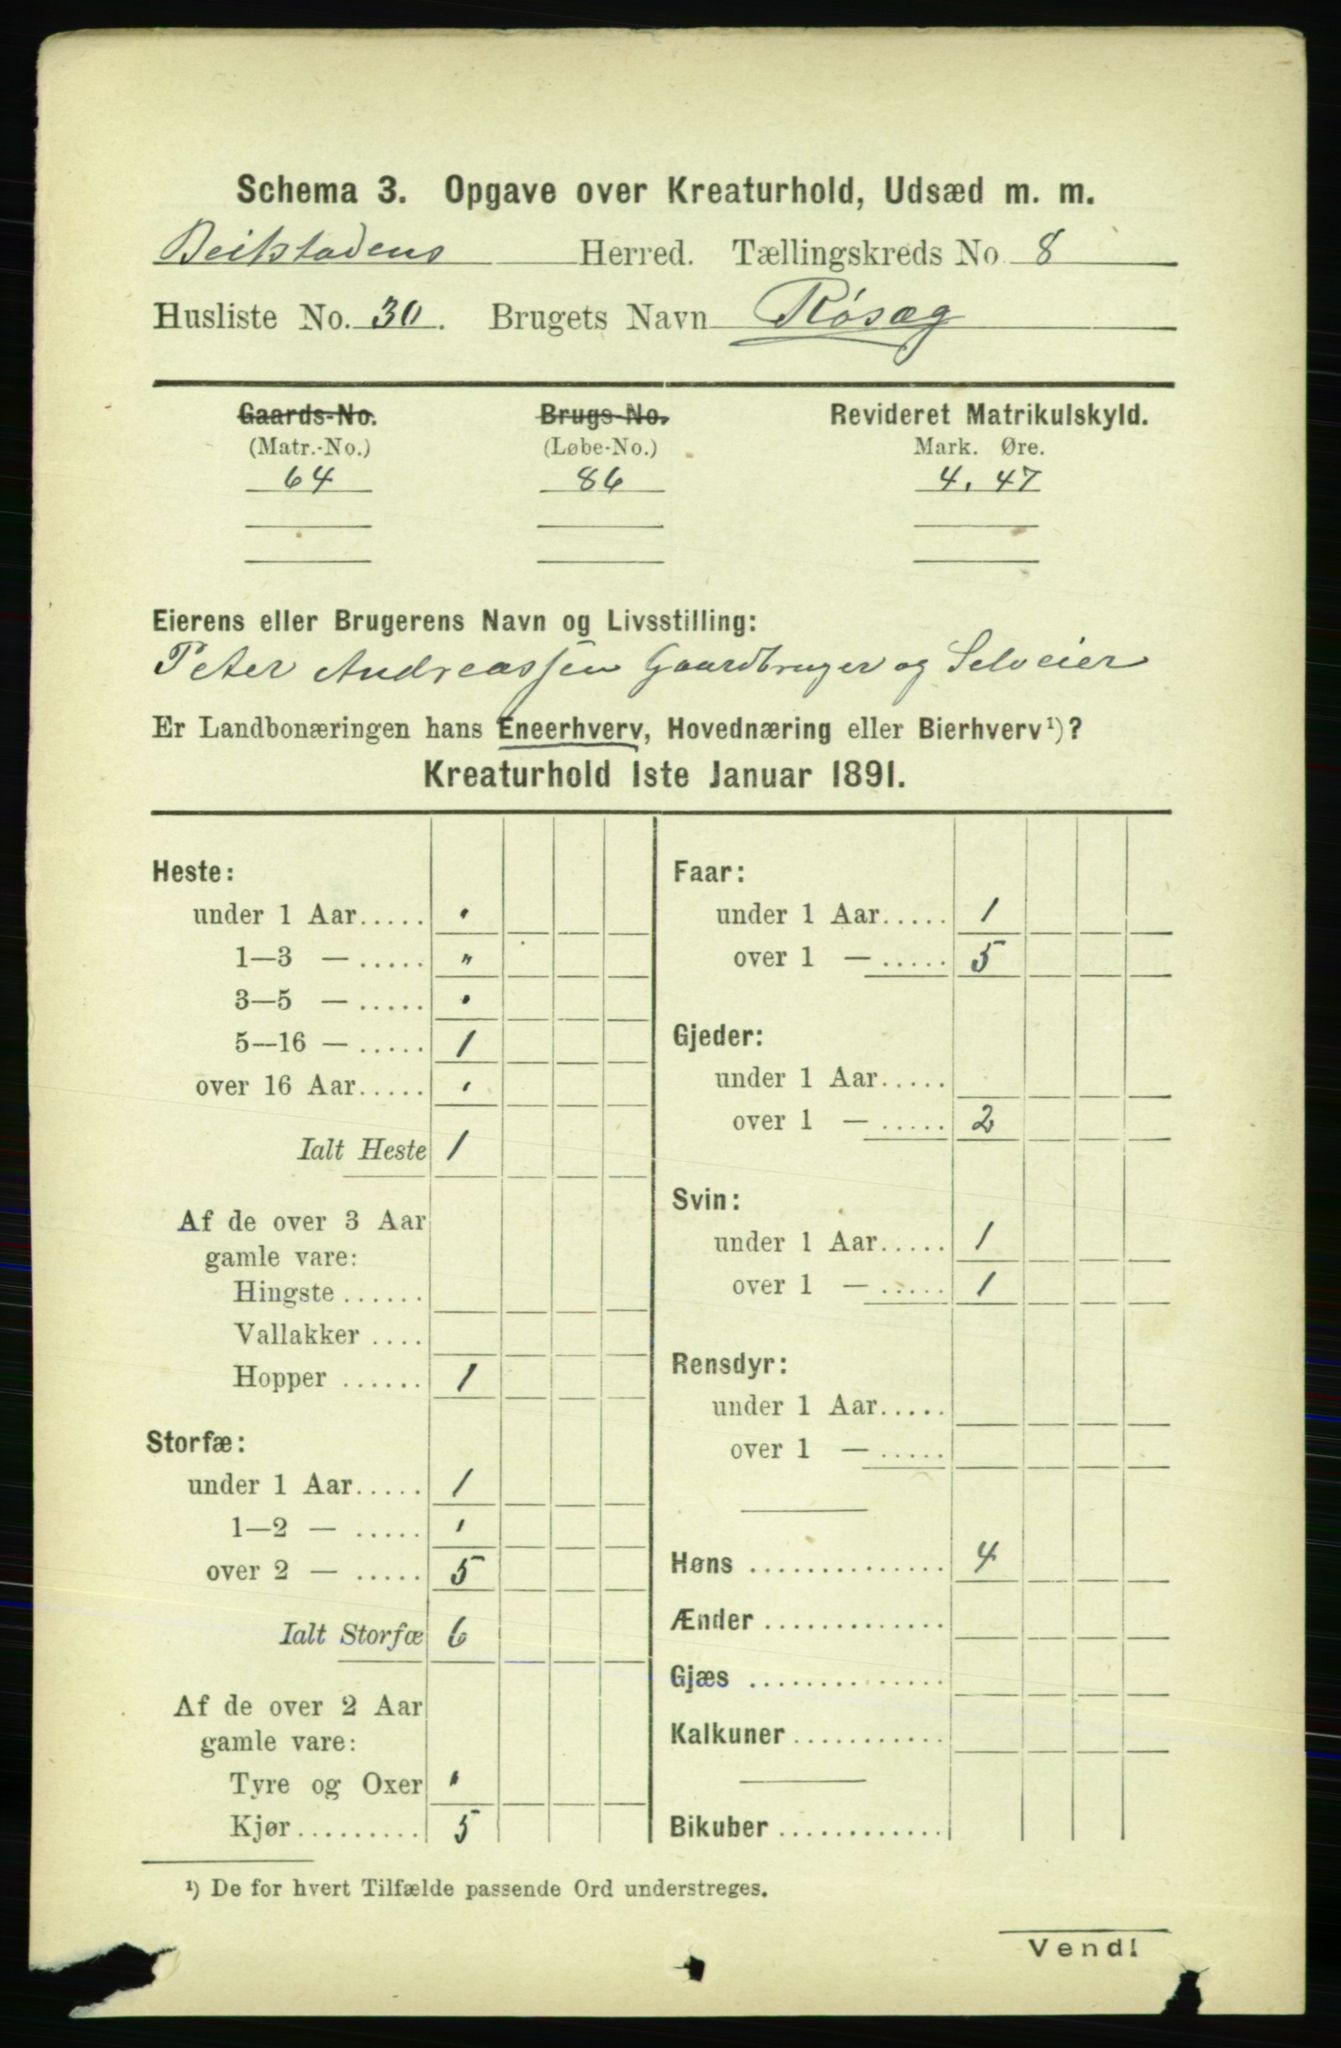 Schema 3. Opgave over Kreaturhold, Udsæd m. m.
Beitstadens Herred. Tællingskreds No. 8
Husliste No. 30. Brugets Navn Røsæg
Gaards-No. Brugs-No. Revideret Matrikulskyld.
(Matr.-No.) (Løbe-No.) Mark. Øre.
64 86 4. 47
Eierens eller Brugerens Navn og Livsstilling:
Peter Andreassen Gaardbruger og Selveier
Er Landbonæringen hans Eneerhverv, Hovednæring eller Bierhverv¹)?
Kreaturhold 1ste Januar 1891.
Heste:
under 1 Aar..... "
1—3 — ..... "
3—5 — ..... "
5—16 — ..... 1
over 16 Aar..... "
Ialt Heste 1
Af de over 3 Aar
gamle vare:
Hingste ......
Vallakker ....
Hopper ...... 1
Storfæ:
under 1 Aar..... 1
1—2 — ..... "
over 2 — ..... 5
Ialt Storfæ 6
Af de over 2 Aar
gamle vare:
Tyre og Oxer "
Kjør......... 5
Faar:
under 1 Aar..... 1
over 1 — ..... 5
Gjeder:
under 1 Aar.....
over 1 — ..... 2
Svin:
under 1 Aar..... 1
over 1 — ..... 1
Rensdyr:
under 1 Aar.....
over 1 — .....
Høns .............. 4
Ænder ..............
Gjæs ..............
Kalkuner ............
Bikuber .............
¹) De for hvert Tilfælde passende Ord understreges.
Vend!